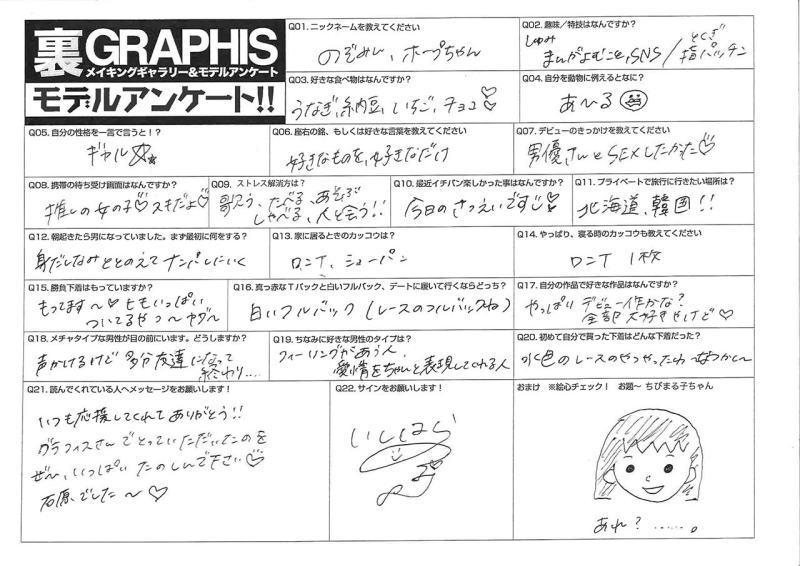 裏GRAPHIS
メイキングギャラリー&モデルアンケート
モデルアンケート!!
Q01. ニックネームを教えてください
のぞみん、ホープちゃん
Q02. 趣味/特技はなんですか?
しゅみ
まんがよむこと、SNS/
とくぎ
指パッチン
Q03. 好きな食べ物はなんですか?
うなぎ、納豆、いちご、チョコ♡
Q04. 自分を動物に例えるとなに?
あ〜る
Q05. 自分の性格を一言で言うと!?
ギャル
Q06. 座右の銘、もしくは好きな言葉を教えてください
好きなものを、好きなだけ
Q07. デビューのきっかけを教えてください
男優さんとSEXしたかった♡
Q08. 携帯の待ち受け画面はなんですか?
推しの女の子♡スキだよ♡
Q09. ストレス解消方は?
歌う、たべる、あそぶ
しゃべる、人と会う!!
Q10. 最近イチバン楽しかった事はなんですか?
今日のさつえいです♡
Q11. プライベートで旅行に行きたい場所は?
北海道、韓国!!
Q12. 朝起きたら男になっていました。まず最初に何をする?
身だしなみととのえてナンパしにいく
Q13. 家に居るときのカッコウは?
ロンT、ショーパン
Q14. やっぱり、寝る時のカッコウも教えてください
ロンT 1枚
Q15. 勝負下着はもっていますか?
もってます〜♡ヒモいっぱい
ついてるやつ〜ヤダ〜
Q16. 真っ赤なTバックと白いフルバック、デートに履いて行くならどっち?
白いフルバック(レースのフルバックね)
Q17. 自分の作品で好きな作品はなんですか?
やっぱりデビュー作かな?
全部大好きやけど♡
Q18. メチャタイプな男性が目の前にいます。どうしますか?
声かけるけど多分友達になって
終わり....
Q19. ちなみに好きな男性のタイプは?
フィーリングがあう人、
愛情をちゃんと表現してくれる人
Q20. 初めて自分で買った下着はどんな下着だった?
水色のレースのやつやったわ〜なつかし〜
Q21. 読んでくれている人へメッセージをお願いします!
いつも応援してくれてありがとう!!
グラフィスさんでとっていただいたのを
ぜひ、いっぱいたのしんで下さい♡
石原でした〜♡
Q22. サインをお願いします!
いしはら
おまけ ※絵心チェック! お題〜 ちびまる子ちゃん
あれ?......。